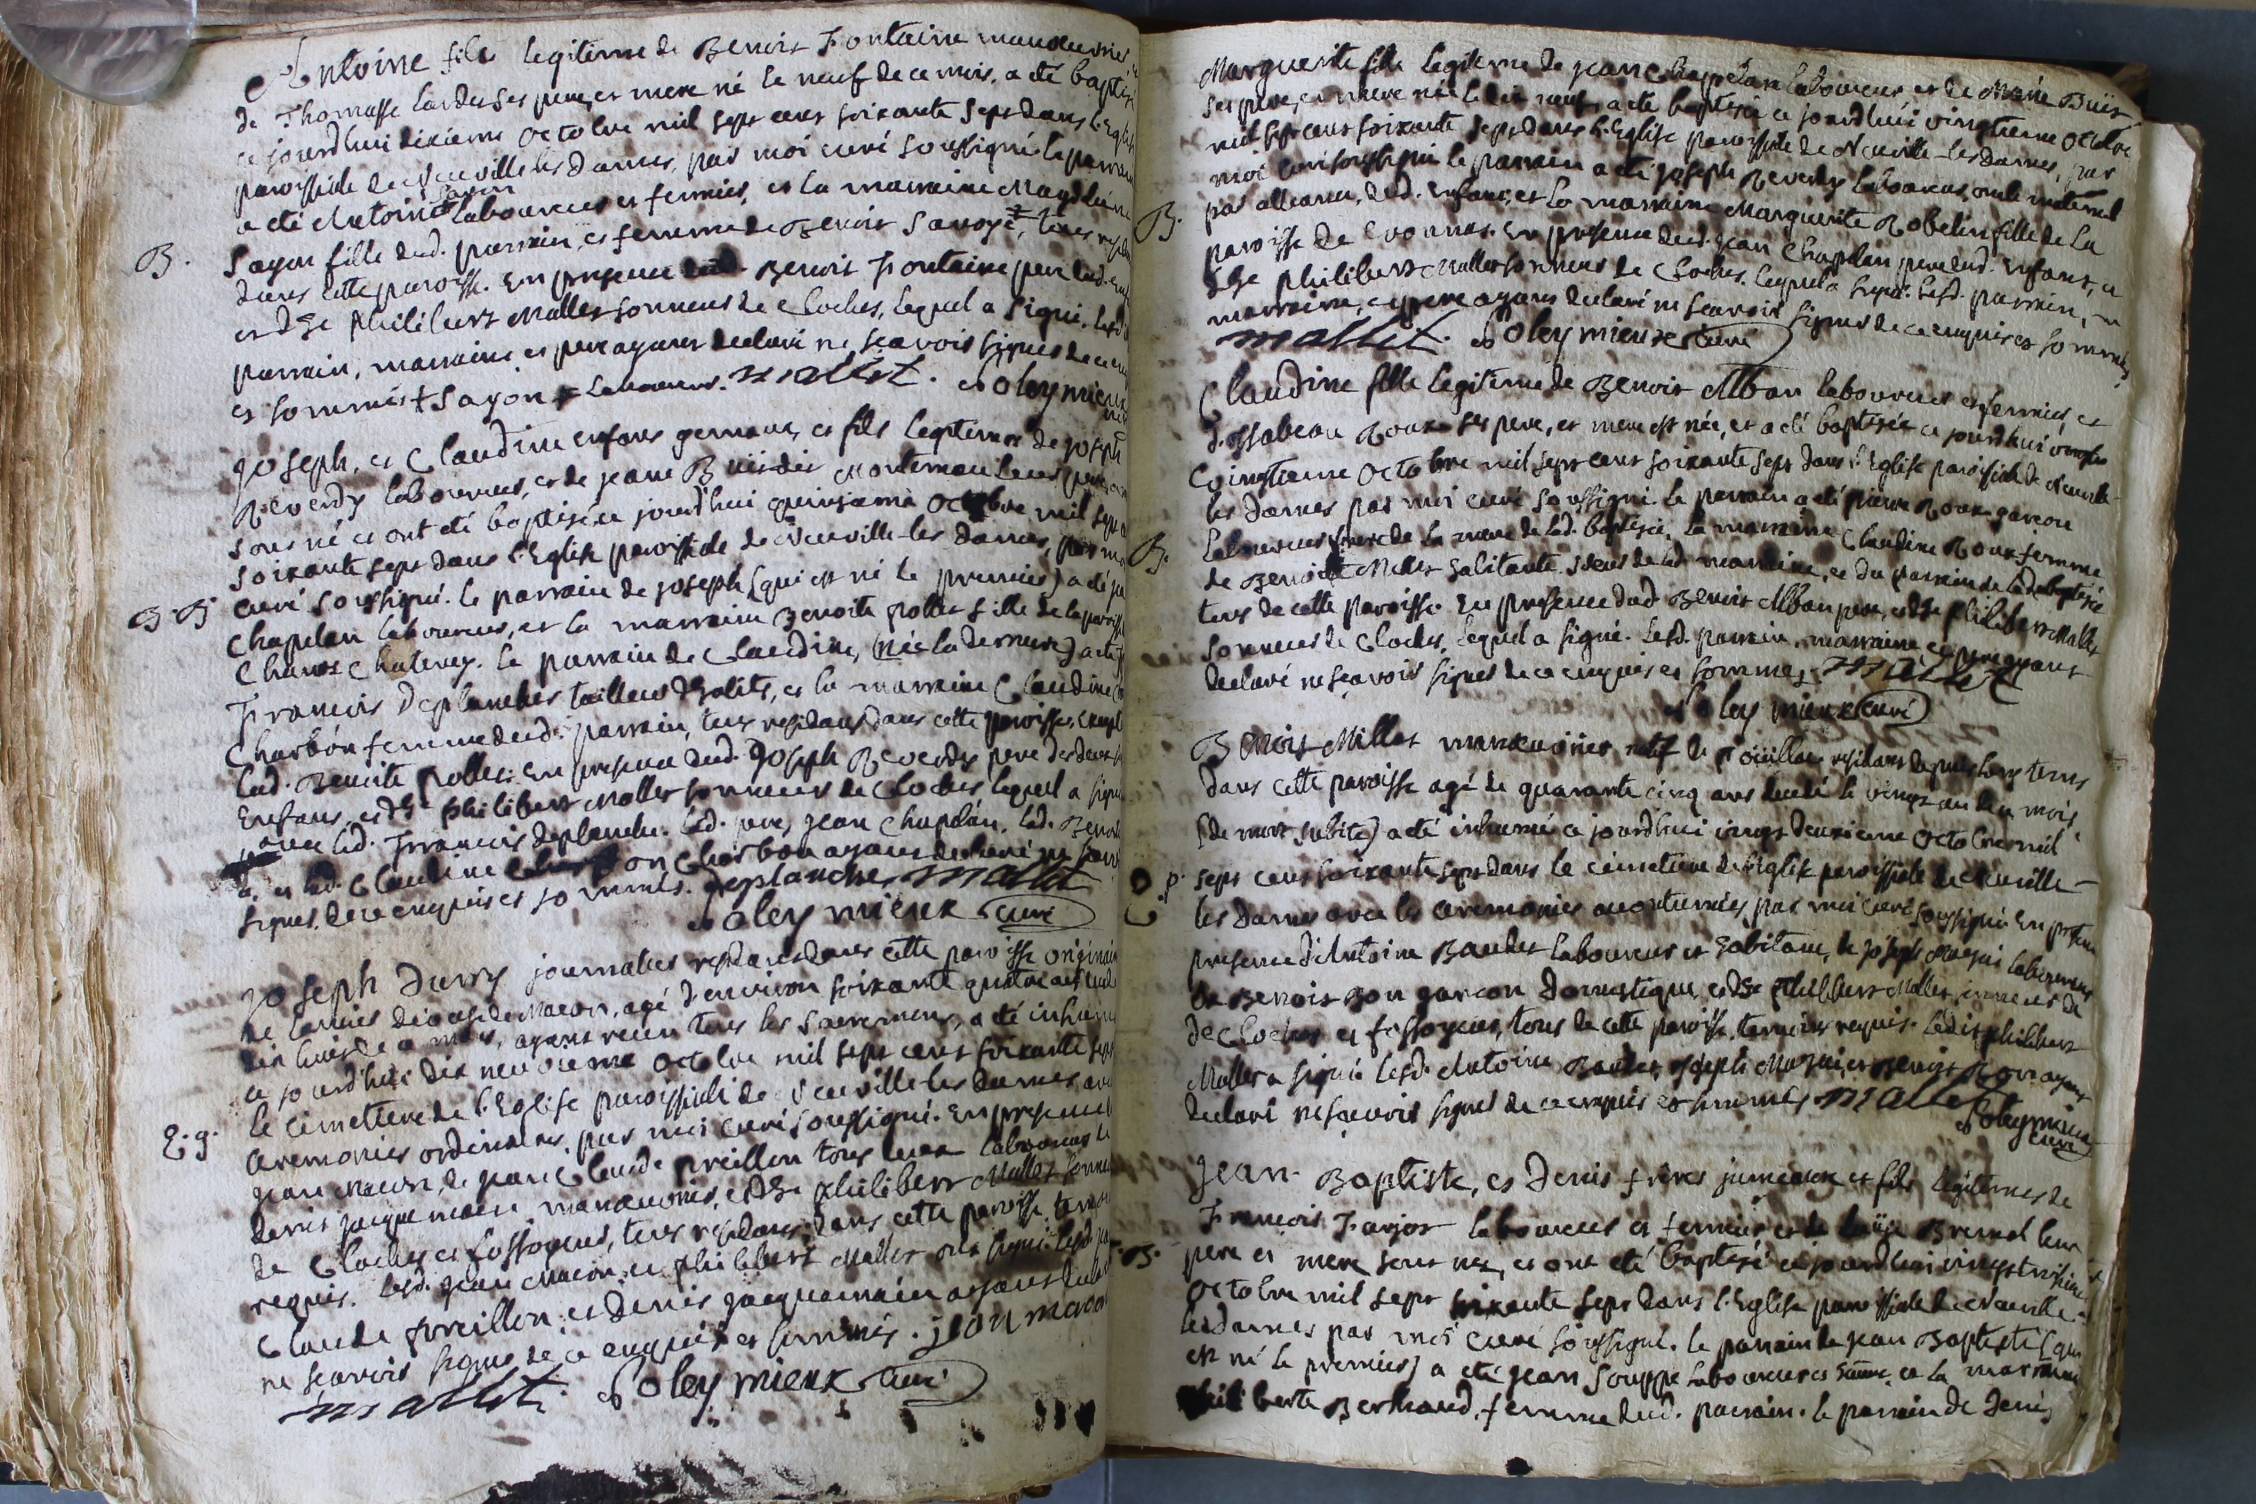 Antoine fils legiteme de Benoit Fontaine manoeuvrier
de Thomasse Lardet ses pere, et mere né le neuf de ce mois, a été baptisé
ce jourd'hui dixieme octobre mil sept cens soixante sept dans l'Eglise
paroissiale de Neuville les dames, par moi curé soussigné le parrain
a été Antoine Sayon laboureur et fermier, et la marraine Magdelaine
B.
Sayon fille dud. parrain, et femme de Benoit Savoye, tous resid
dans cette paroisse. En presence dud. Benoit Fontaine pere dud. enf
et de Sr philibert Mallet sonneur de Cloches, lequel a signé. Lesd
parrain, marraine et pere ayant declaré ne sçavoir signer de ce enq
et sommés ‡ Sayon ‡ laboureur. mallet. Soleymieux
curé
Joseph, et Claudine enfans gemeaux et fils legitemes de joseph
Reverdy laboureur, et de jeane Buis dit Montemau leurs pere, et
sont né et ont été baptisé ce jourd'hui quinsieme octobre mil sept c
soixante sept dans l'Eglise paroissiale de Neuville-les dames, par moi
B. B
curé soussigné. le parrain de joseph (qui est né le premier) a été je
Chapelan laboureur, et la marraine Benoite pollet fille de la paroisse
Chanoz Chatenay. Le parrain de Claudine, (née la derniere) a été
François Deplanches tailleur d'habits, et la marraine Claudine
Charbon femme dud. parrain, tous residans dans cette paroisse, excepté
lad. Benoite pollet. En presence dud. Joseph Reverdy pere desdeux
Enfans, et de Sr philibert Mallet sonneur de Cloches lequel a signé
avec led. François deplanche. led. pere, jean Chapelan, lad. Benoite
et lad. Claudine Charbon ayant declaré ne sçavoir
signer de ce enquis et sommés. Deplanche, mallet
Soleymieux curé
Joseph Durry journalier residant dans cette paroisse originaire
de diocese de Macon, agé d'environ soixante quatre ans decedé
dix huit de ce mois, ayant reçu tous les sacremens, a été inhumé
ce jourd'hui dix neuvieme octobre mil sept cens soixante sept
le cimettere de l'Eglise paroissiale de Neuville-les dames, avec
E. g.
Ceremonies ordinaires, par moi curé soussigné. En presence de
jean Macon, de jean Claude preillon tous deux laboureurs de
denis jacquemain manoeuvrier, et de Sr philibert Mallet sonneur
de Cloches et fossoyeur, tous residans dans cette paroisse temoins
requis. Lesd. jean Macon, et philibert Mallet ont signé. lesd. jean
Claude preillon, et Denis jacquemain ayant declaré
ne sçavoir signer de ce enquis et sommés. jean macon
mallet. Soleymieux curé
Marguerite fille legiteme de jean Chappelan laboureur et de Marie Buis
ses pere, et mere née le dix neuf, a été baptisée ce jourd'hui vingtieme octobre
mil sept cens soixante sept dans l'Eglise paroissiale de Neuville-les dames, par
moi curé soussigné le parrain a été joseph Reverdy laboureur, oncle maternel
par alliance, dud. Enfant, et la marraine Marguerite Robelin fille de la
B.
paroisse de Vonnas. En presence dud. jean Chapelan pere dud. Enfant, et
de Sr philibert Mallet sonneur de Cloches. lequel a signé. Lesd. parrain,
marraine, et pere ayant declaré ne sçavoir signer de ce enquis et sommés
mallet. Soleymieux curé
Claudine fille legiteme de Benoit Alban laboureur et fermier, et
d'Issabeau Roux ses pere, et mere est née, et a été baptisée ce jourd'hui
vingtieme octobre mil sept cens soixante sept dans l'Eglise paroissiale de Neuville-
les dames par moi curé soussigné. le parrain a été pierre Roux garcon
B.
laboureur frere de la mere de lad. baptisée. La marraine Claudine Roux femme
de Benoit Millet habitante de lad. marraine, et du parrain de lad. baptisée
tous de cette paroisse. En presence dud. Benoit Alban pere, et de Sr philibert Mallet
sonneur de Cloches, lequel a signé. Lesd. parrain, marraine et pere ayant
declaré ne sçavoir signer de ce enquis et sommés. mallet
Soleymieux curé
Benoit Millet manoeuvrier natif de residant depuis long tems
dans cette paroisse agé de quarante cinq ans decedé le vingt un du mois
(de mort subite) a été inhumé ce jourd'hui vingt deuxieme octobre mil
p.
sept cens soixante sept dans le cimetiere de l'Eglise paroissiale de Neuville-
les dames avec les ceremonies accoutumées par moi curé soussigné En presence
presence d'Antoine Baudet laboureur et habitant, de joseph Mognié laboureur
de Benoit Bon garcon domestique, et de Sr philibert Mallet sonneur de
de Cloches et fossoyeur, tous de cette paroisse, temoins requis. Ledit philibert
Mallet a signé. Lesd. Antoine Baudet, joseph Mognié, et Benoit Bon ayant
declaré ne sçavoir signer de ce enquis et sommés mallet
Soleymieux
curé
Jean-Baptiste, et Denis frères jumeaux et fils legitemes de
François Farjot laboureur et fermier, et de Brunel leur
B.
pere et mere sont nez, et ont été baptisé ce jourd'hui vingt troisieme
octobre mil sept soixante sept dans l'Eglise paroissiale de Neuville-
lesdames par moi curé soussigné. Le parrain de jean Baptiste (qui
est né le premier) a été jean Souppe laboureur et la marraine
philiberte Berthaud, femme dud. parrain. Le parrain de Denis